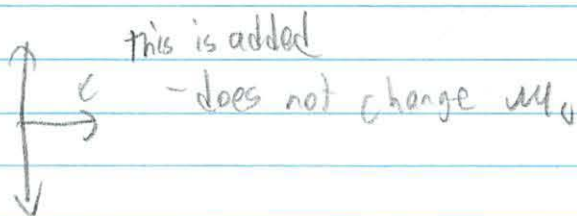 this is added
c - does not change M₀